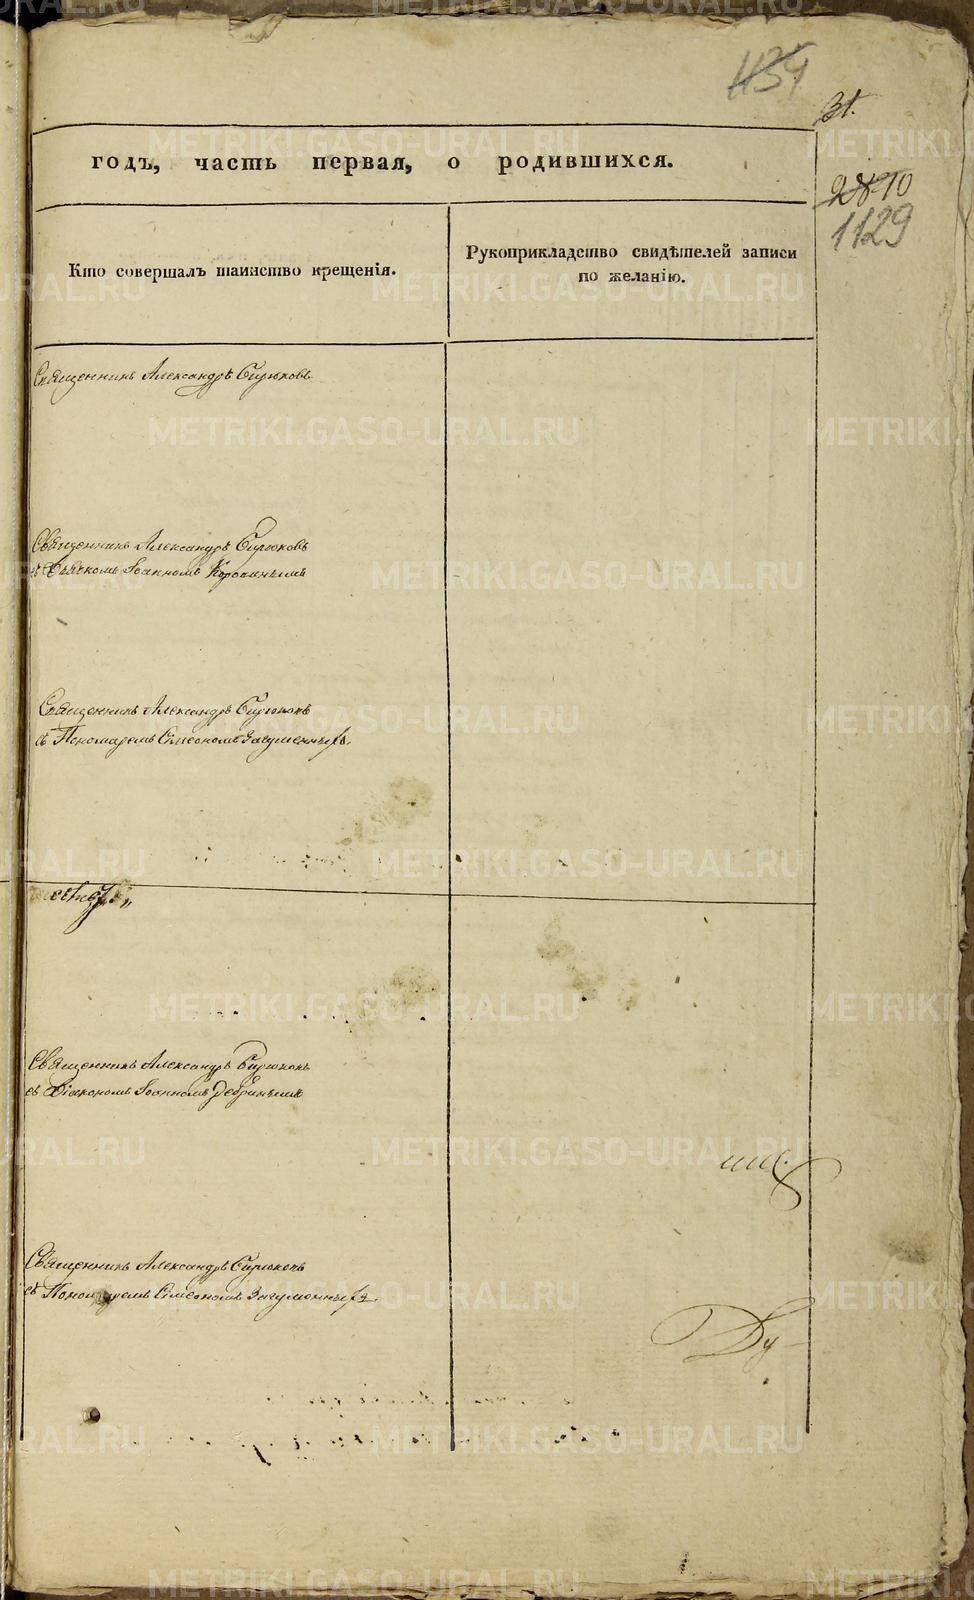 1134
31.
2810
1129
годъ, часть первая, о родившихся.
Кто совершалъ таинство крещенія.
Рукоприкладство свидѣтелей записи
по желанію.
Священникъ Александръ Бирюковъ
Священникъ Александръ Бирюковъ
съ Діакономъ Іоанномъ
Священникъ Александръ Бирюковъ
съ Пономаремъ Симеономъ
Священникъ Александръ Бирюковъ
съ Діакономъ Іоанномъ
Священникъ Александръ Бирюковъ
съ Пономаремъ Симеономъ
Ду
METRIKI.GASO-URAL.RU